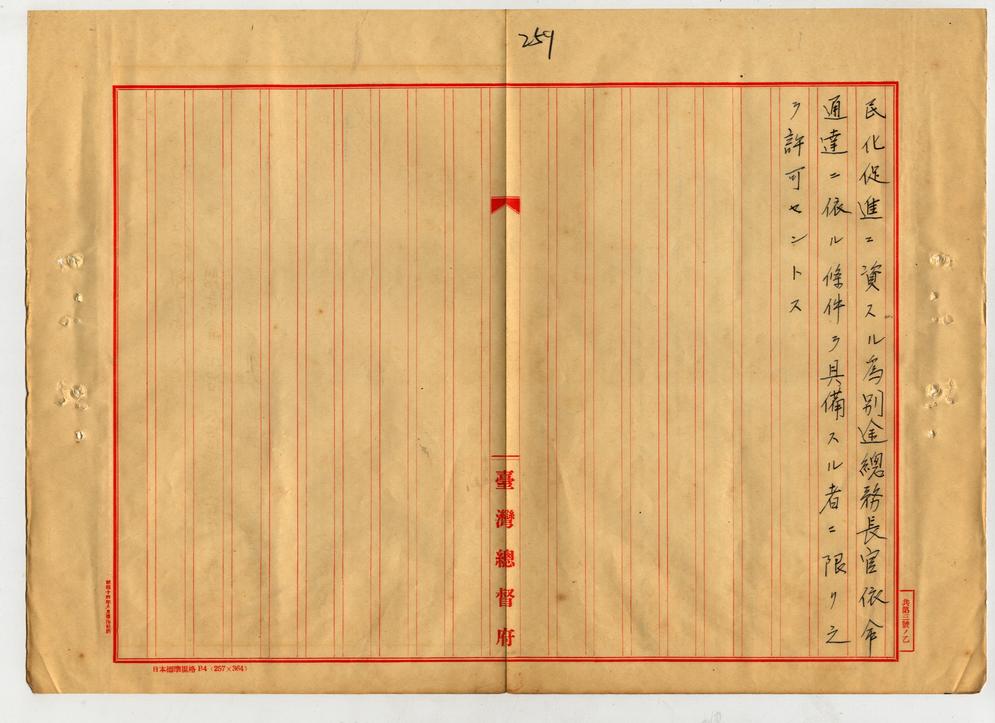 259
民化促進ニ資スル為別途總務長官依命
通達ニ依ル條件ヲ具備スル者ニ限リ之
ヲ許可セントス
臺灣總督府
共第三號ノ乙
日本標準規格B4(257×364)